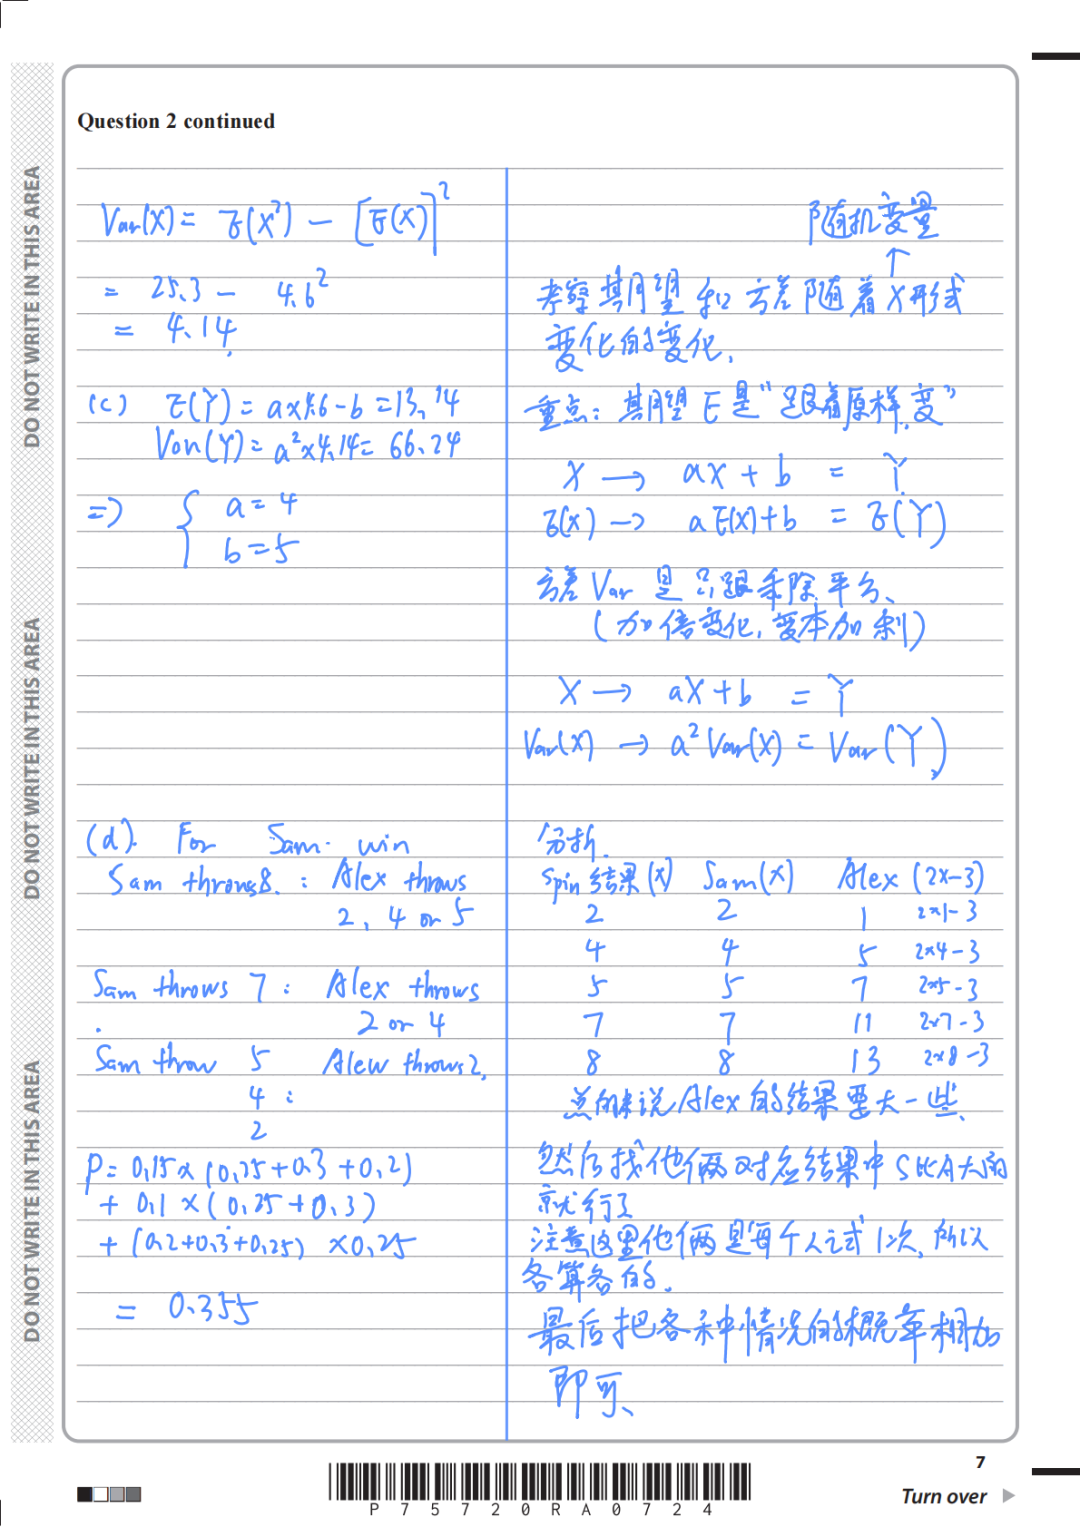 Question 2 continued
Var(X) = E(X²) − [E(X)]²
= 25.3 − 4.6²
= 4.14.
(c) E(Y) = a×4.6−b = 13.14
Var(Y) = a²×4.14 = 66.24
=> { a = 4
b = 5
(d). For Sam win
Sam throws 8. : Alex throws
2, 4 or 5
Sam throws 7 : Alex throws
2 or 4
Sam throw 5 Alew throws 2,
4 :
2
P = 0.15 × (0.25+0.3+0.2)
+ 0.1 × (0.25+0.3)
+ (0.2+0.3+0.25) ×0.25
= 0.355
随机变量
↑
考察期望和方差随着X形式
变化的变化.
重点: 期望E是"跟着原样变"
X → aX + b = Y
E(x) → aE(X)+b = E(Y)
方差Var是只跟乘除平方、
(加倍变化, 变本加利)
X → aX+b = Y
Var(X) → a²Var(X) = Var(Y)
分析.
Spin结果(X) Sam(X) Alex (2X−3)
2 2 1 2×1−3
4 4 5 2×4−3
5 5 7 2×5−3
7 7 11 2×7−3
8 8 13 2×8−3
总的来说Alex的结果要大一些、
然后找他俩对应结果中S比A大的
就行了
注意这里他俩是每个人试1次, 所以
各算各的.
最后把各种情况的概率相加
即可、
DO NOT WRITE IN THIS AREA
DO NOT WRITE IN THIS AREA
DO NOT WRITE IN THIS AREA
7
P75720RA0724
Turn over